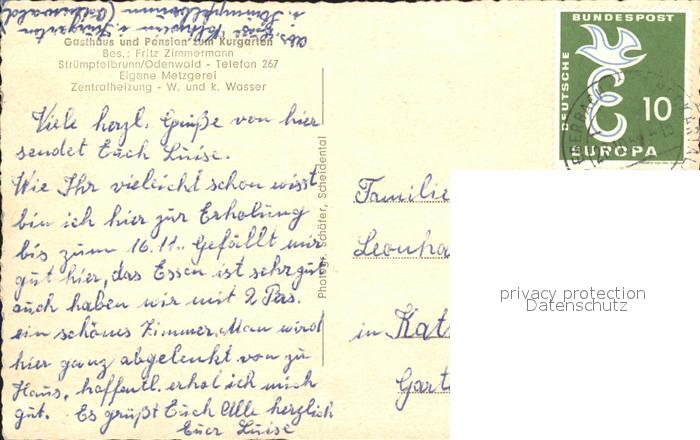 Gasthaus und Pension zum Kurgarten
Bes.: Fritz Zimmermann
Strümpfelbrunn/Odenwald - Telefon 267
Eigene Metzgerei
Zentralheizung - W. und k. Wasser
Viele herzl. Grüße von hier
sendet Euch Luise.
Wie Ihr vielleicht schon wisst
bin ich hier zur Erholung
bis zum 16.11. Gefällt mir
gut hier, das Essen ist sehr gut
auch haben wir mit 2 Pers.
ein schönes Zimmer. Man wird
hier ganz abgelenkt von zu
Haus, hoffentl. erhol ich mich
gut. Es grüßt Euch Alle herzlich
Euer Luise
Photogr. Schäfer, Scheidental
DEUTSCHE
BUNDESPOST
10
EUROPA
Familie
Leonha
in Kats
Gart
privacy protection
Datenschutz